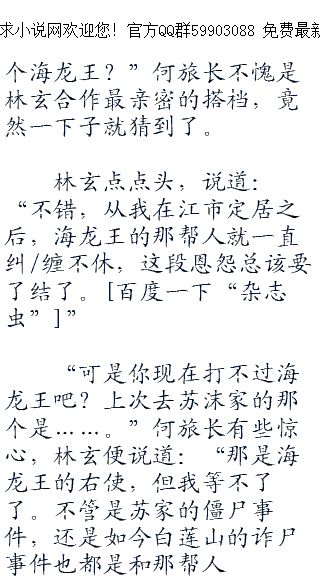 求小说网欢迎您！官方QQ群59903088 免费最新
个海龙王？”何旅长不愧是
林玄合作最亲密的搭裆，竟
然一下子就猜到了。
林玄点点头，说道：
“不错，从我在江市定居之
后，海龙王的那帮人就一直
纠/缠不休，这段恩怨总该要
了结了。[百度一下“杂志
虫”]”
“可是你现在打不过海
龙王吧？上次去苏沫家的那
个是……。”何旅长有些惊
心，林玄便说道：“那是海
龙王的右使，但我等不了
了。不管是苏家的僵尸事
件，还是如今白莲山的诈尸
事件也都是和那帮人